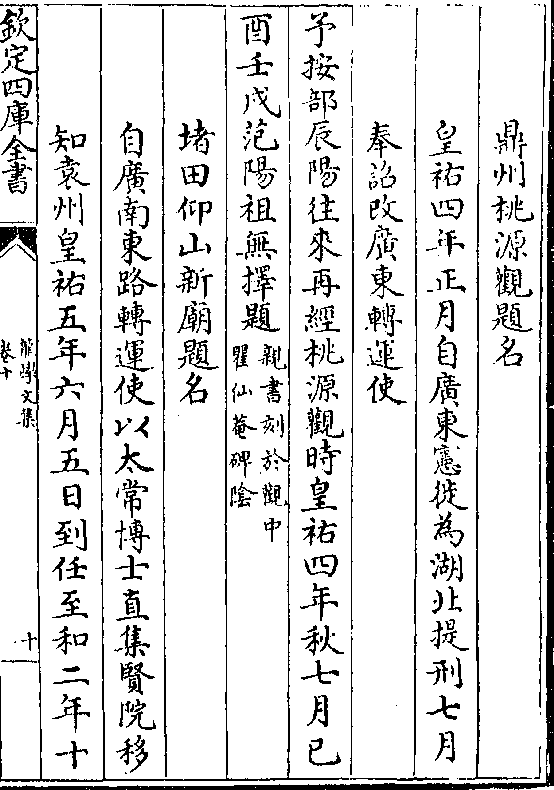 鼎州桃源觀題名
皇祐四年正月自廣東憲徙為湖北提刑七月
奉詔改廣東轉運使
予按部辰陽往來再經桃源觀時皇祐四年秋七月已
酉壬戌范陽祖無擇題親書刻於觀中
瞿仙菴碑陰
堵田仰山新廟題名
自廣南東路轉運使以太常博士直集賢院移
知袁州皇祐五年六月五日到任至和二年十
欽定四庫全書
龍學文集
卷十
十